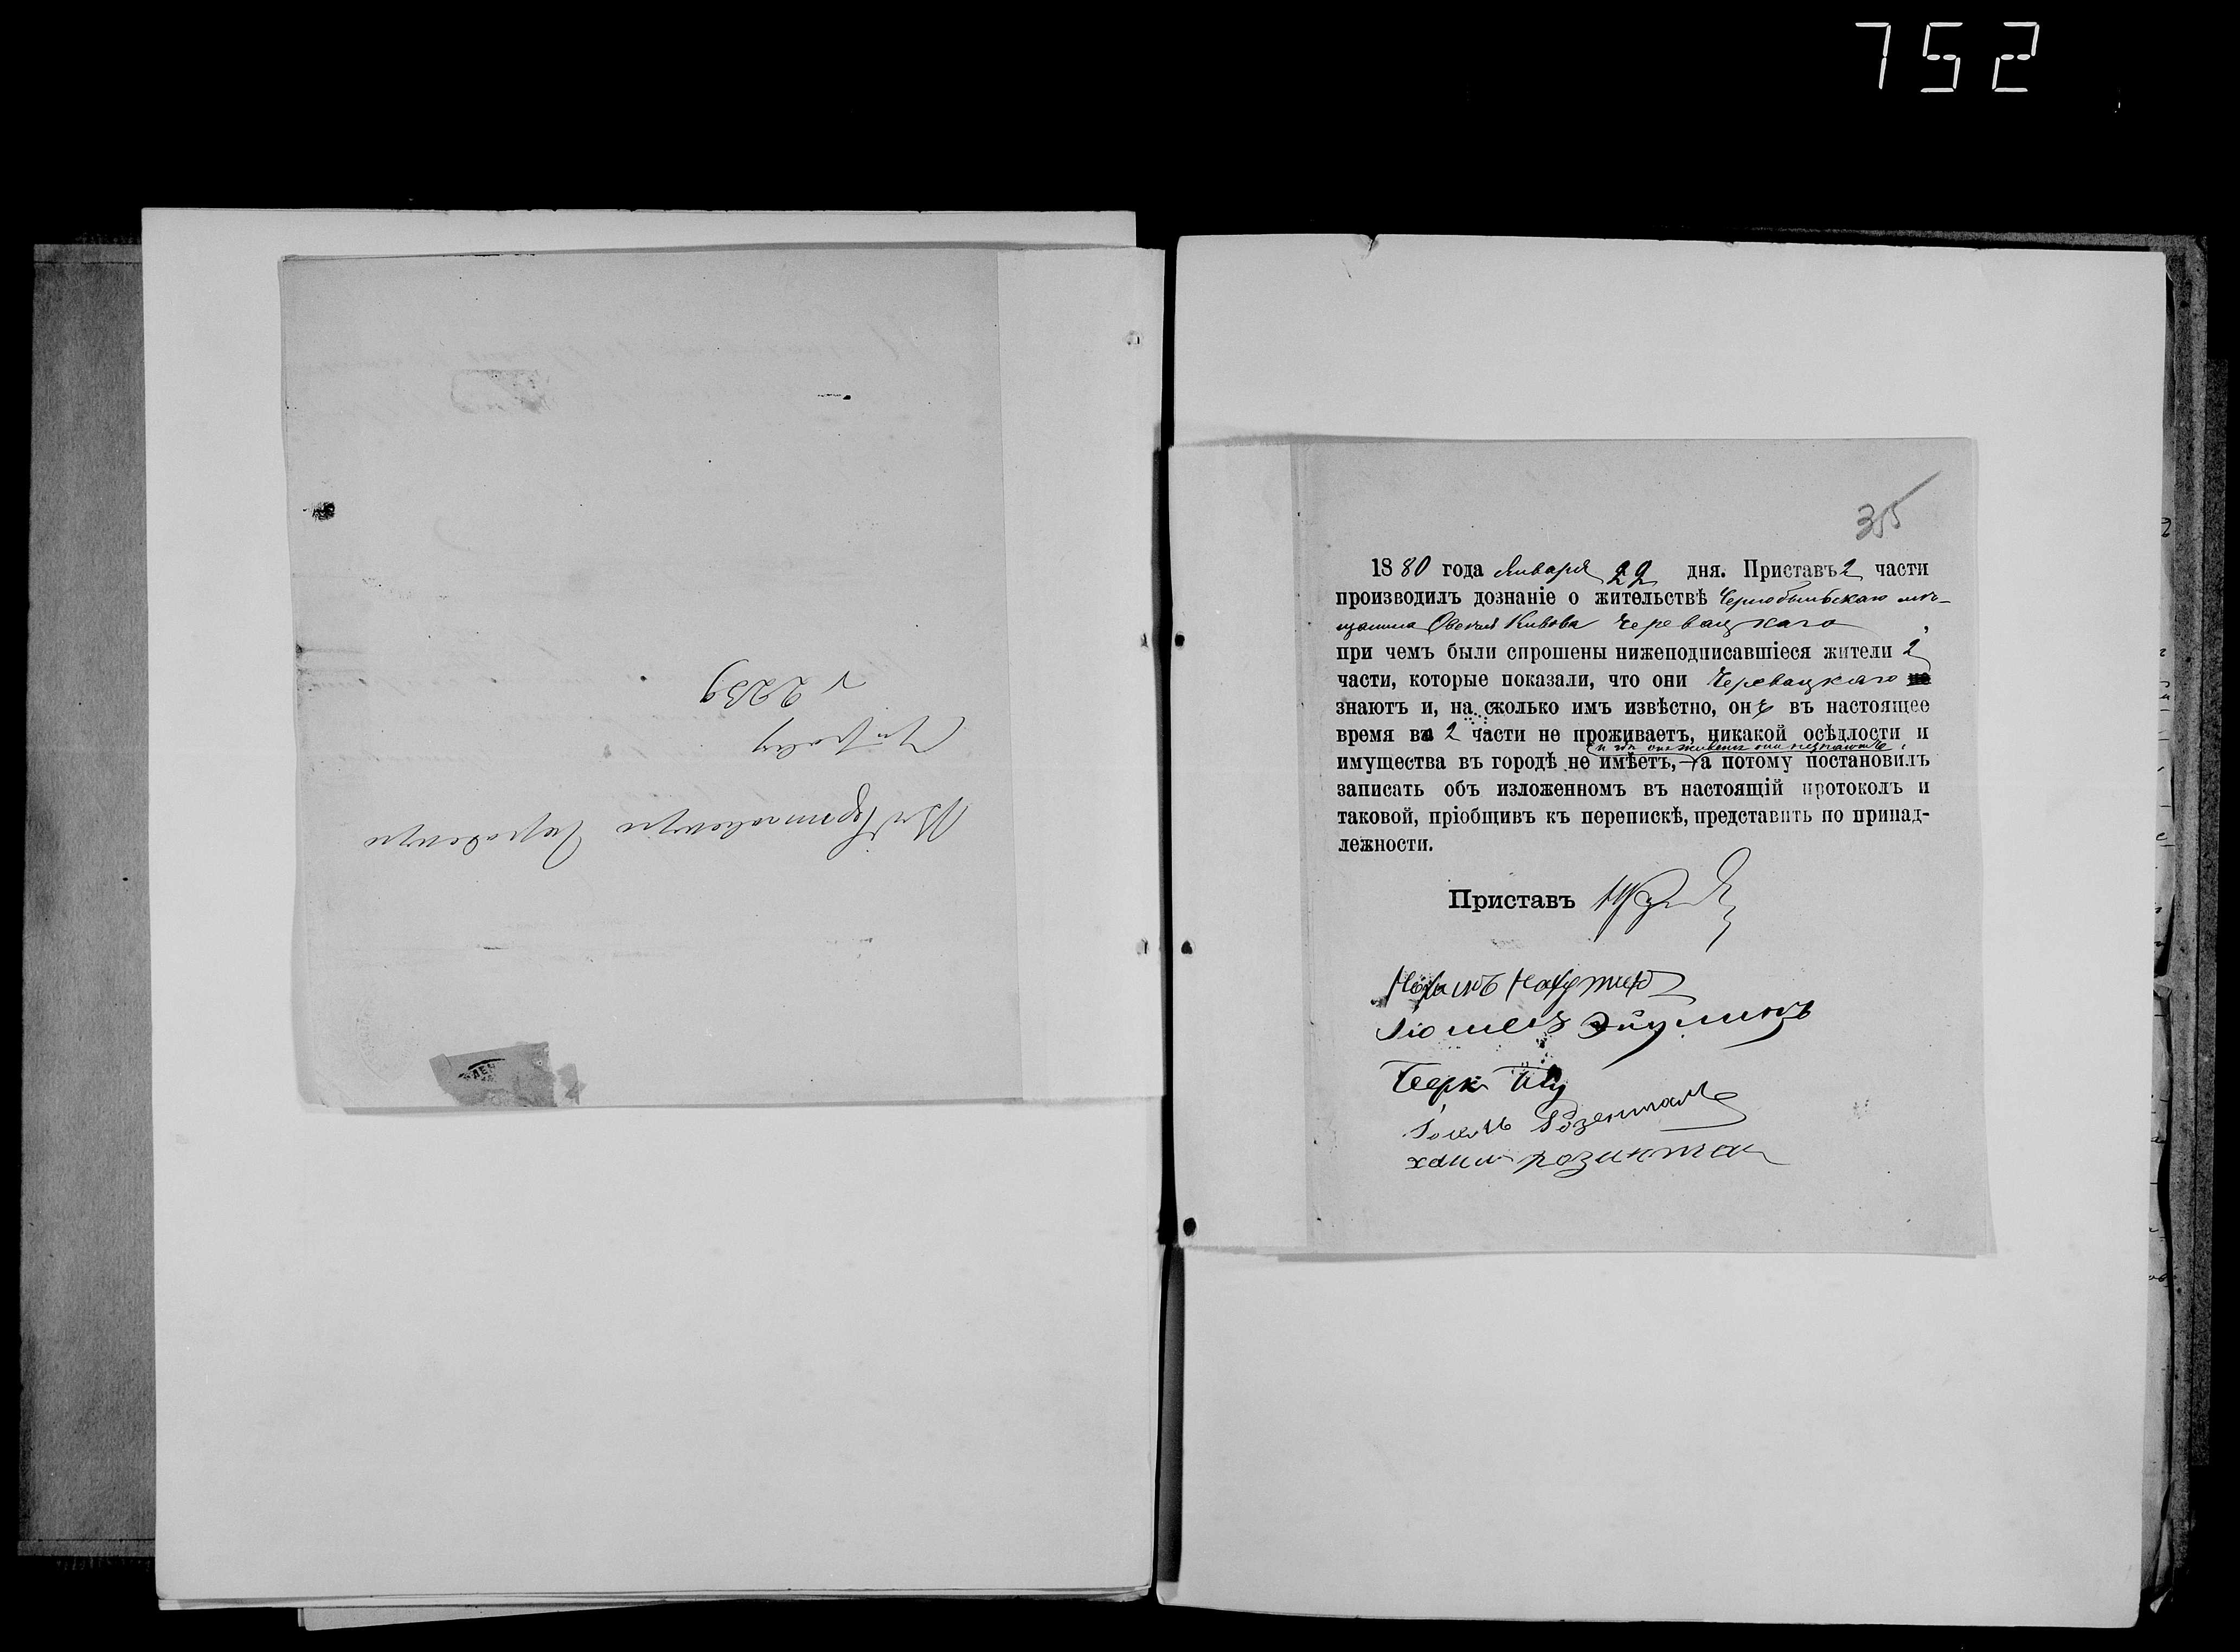 752
Въ Чернобыльскую Городскую
Управу
№ 2239
355
1880 года Января 22 дня. Приставъ 2 части
производилъ дознаніе о жительствѣ Чернобыльскаго мѣ-
щанина Овсея Кивова Червацкаго,
при чемъ были спрошены нижеподписавшіеся жители 2
части, которые показали, что они Червацкаго не
знаютъ и, на сколько имъ извѣстно, онъ въ настоящее
время въ 2 части не проживаетъ, никакой осѣдлости и
и гдѣ онъ живетъ они незнаютъ,
имущества въ городѣ не имѣетъ, а потому постановилъ
записать объ изложенномъ въ настоящій протоколъ и
таковой, пріобщивъ къ перепискѣ, представить по принад-
лежности.
Приставъ
Берко
Розенталь